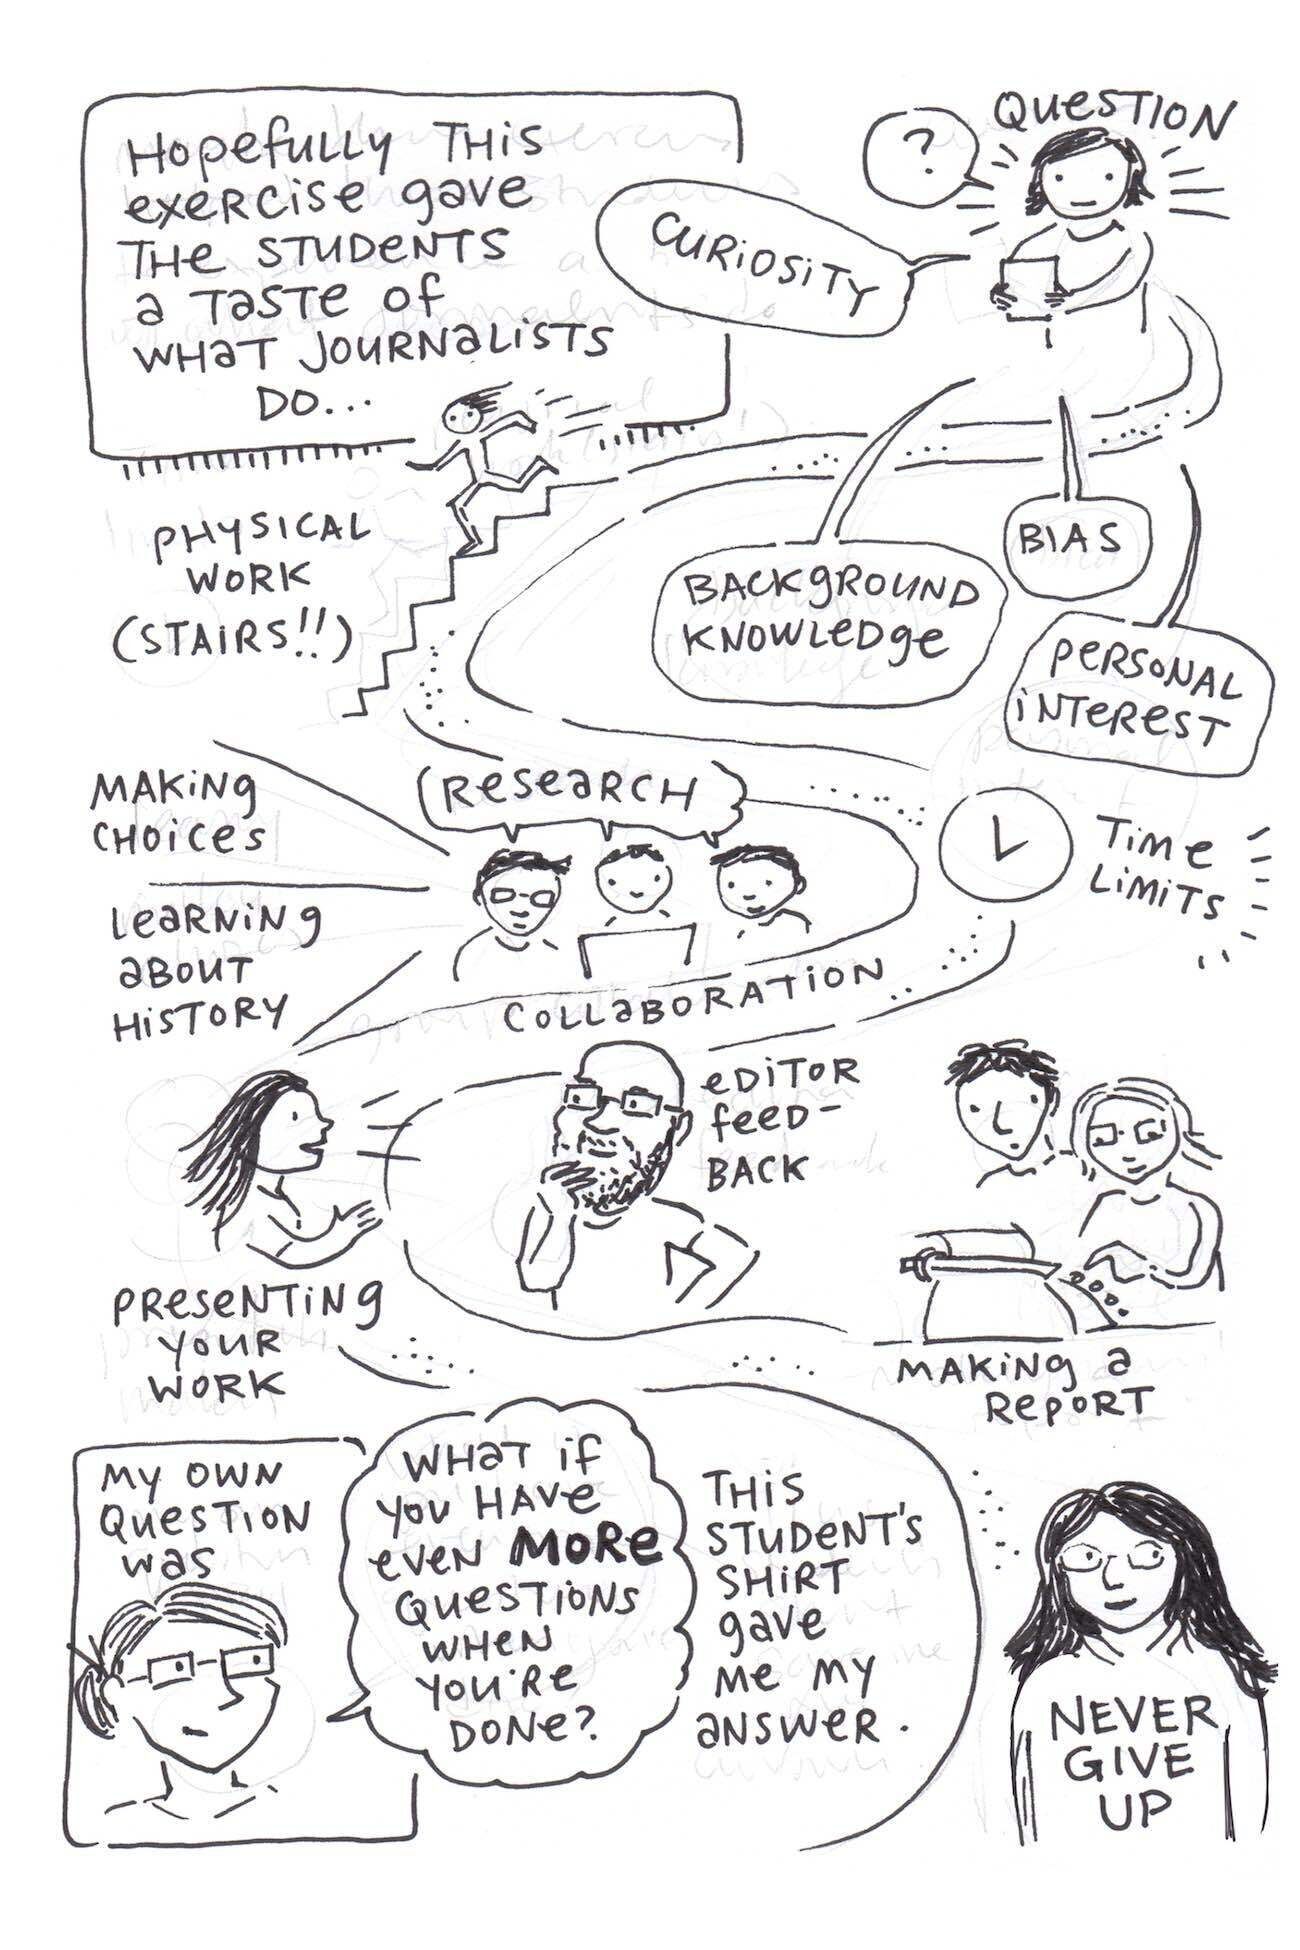 Hopefully this
exercise gave
the students
a taste of
what journalists
do...
?
Question
Curiosity
Background
knowledge
Bias
Personal
interest
Physical
work
(stairs!!)
Making
choices
Research
Time
limits
Learning
about
history
Collaboration
Editor
feed-
back
Presenting
your
work
Making a
report
My own
question
was
What if
you have
even MORE
questions
when
you're
done?
This
student's
shirt
gave
me my
answer.
NEVER
GIVE
UP